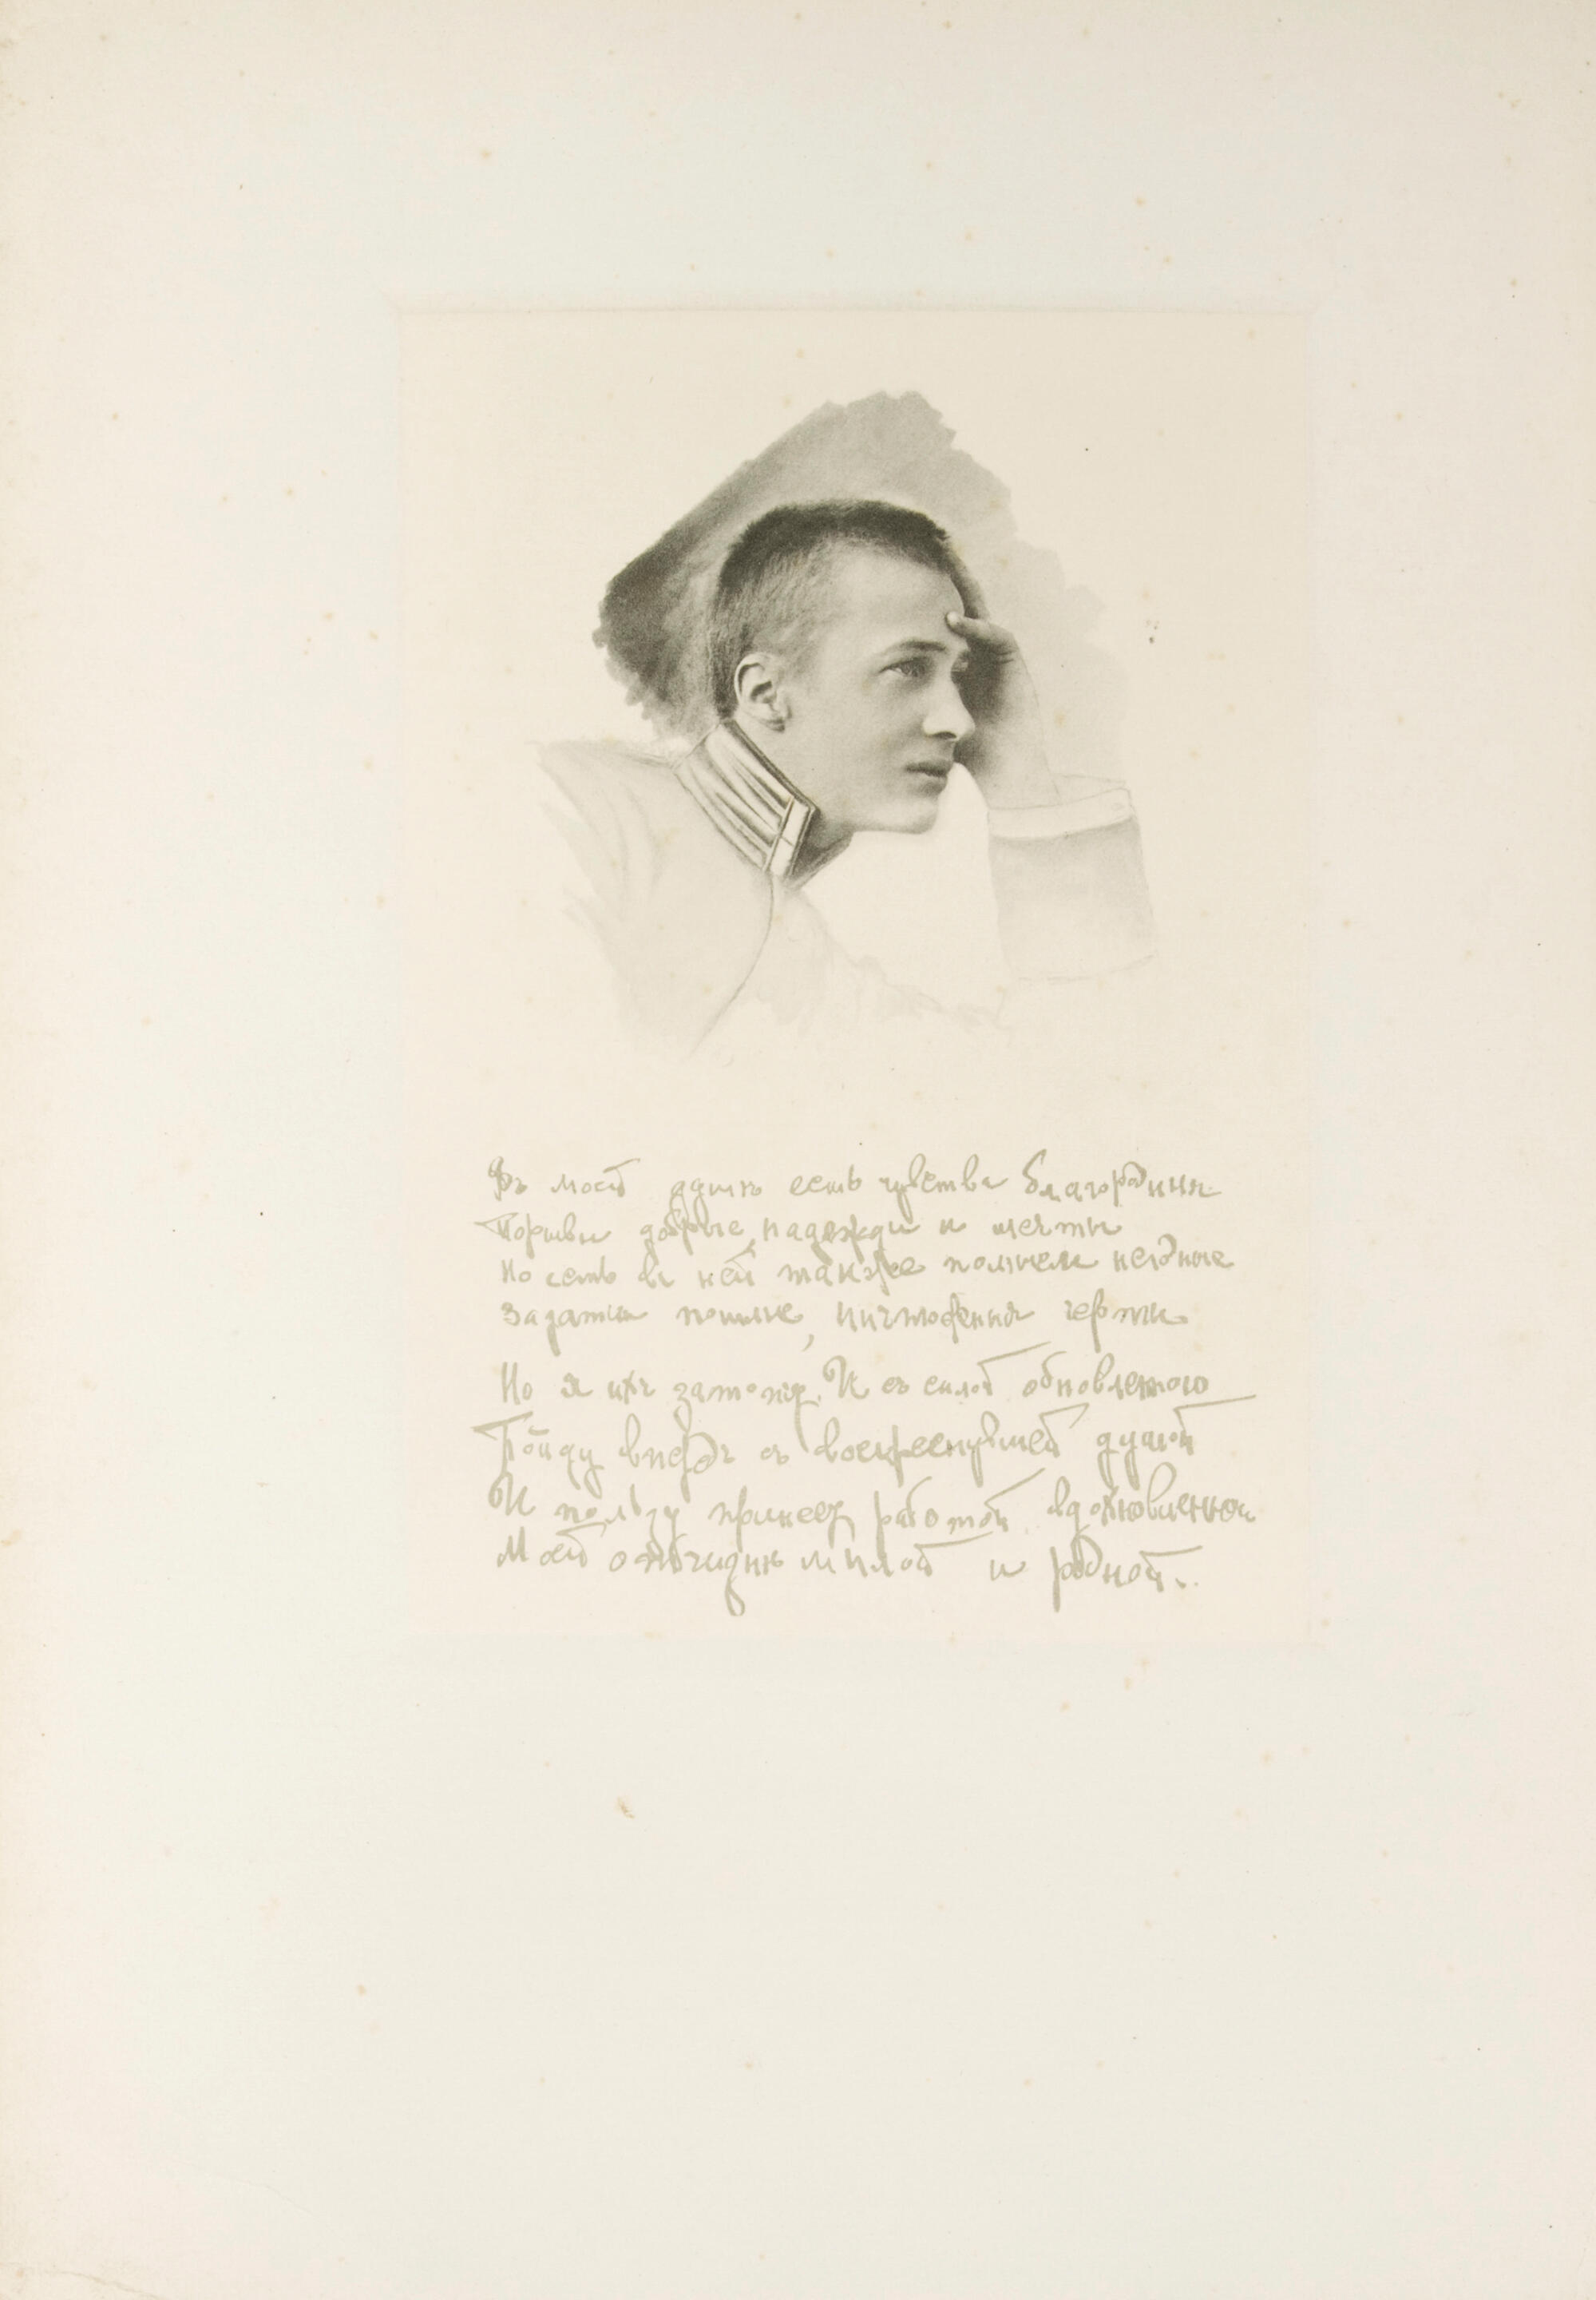 Въ моей душѣ есть чувства благородныя
Порывы добрые, надежды и мечты
Но есть въ ней также помыслы негодные
Задатки пошлые, ничтожныя черты
Но я ихъ затопчу. И съ силой обновленною
Пойду впередъ съ воскреснувшей душой
И пользу принесу работой вдохновенной
Моей отчизнѣ милой и родной..